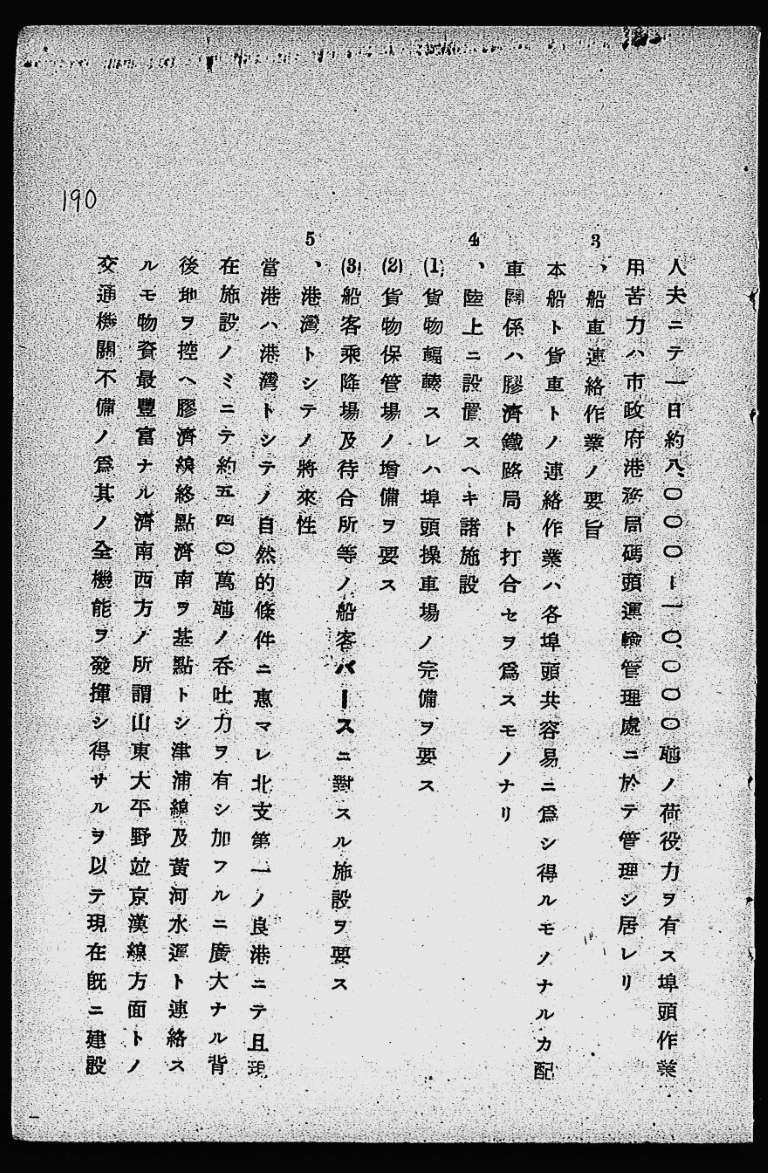 人夫ニテ一日約八、〇〇〇―一〇、〇〇〇噸ノ荷役力ヲ有ス埠頭作業
用苦力ハ市政府港務局碼頭運輸管理處ニ於テ管理シ居レリ
3、船車連絡作業ノ要旨
本船ト貨車トノ連絡作業ハ各埠頭共容易ニ爲シ得ルモノナルカ配
車關係ハ膠濟鐵路局ト打合セヲ爲スモノナリ
4、陸上ニ設置スヘキ諸施設
(1)貨物輻輳スレハ埠頭操車場ノ完備ヲ要ス
(2)貨物保管場ノ增備ヲ要ス
(3)船客乘降場及待合所等ノ船客バースニ對スル施設ヲ要ス
5、港灣トシテノ將來性
當港ハ港灣トシテノ自然的條件ニ惠マレ北支第一ノ良港ニテ且現
在施設ノミニテ約五四〇萬噸ノ呑吐力ヲ有シ加フルニ廣大ナル背
後地ヲ控ヘ膠濟線終點濟南ヲ基點トシ津浦線及黃河水運ト連絡ス
ルモ物資最豐富ナル濟南西方ノ所謂山東大平野竝京漢線方面トノ
交通機關不備ノ爲其ノ全機能ヲ發揮シ得サルヲ以テ現在既ニ建設
190